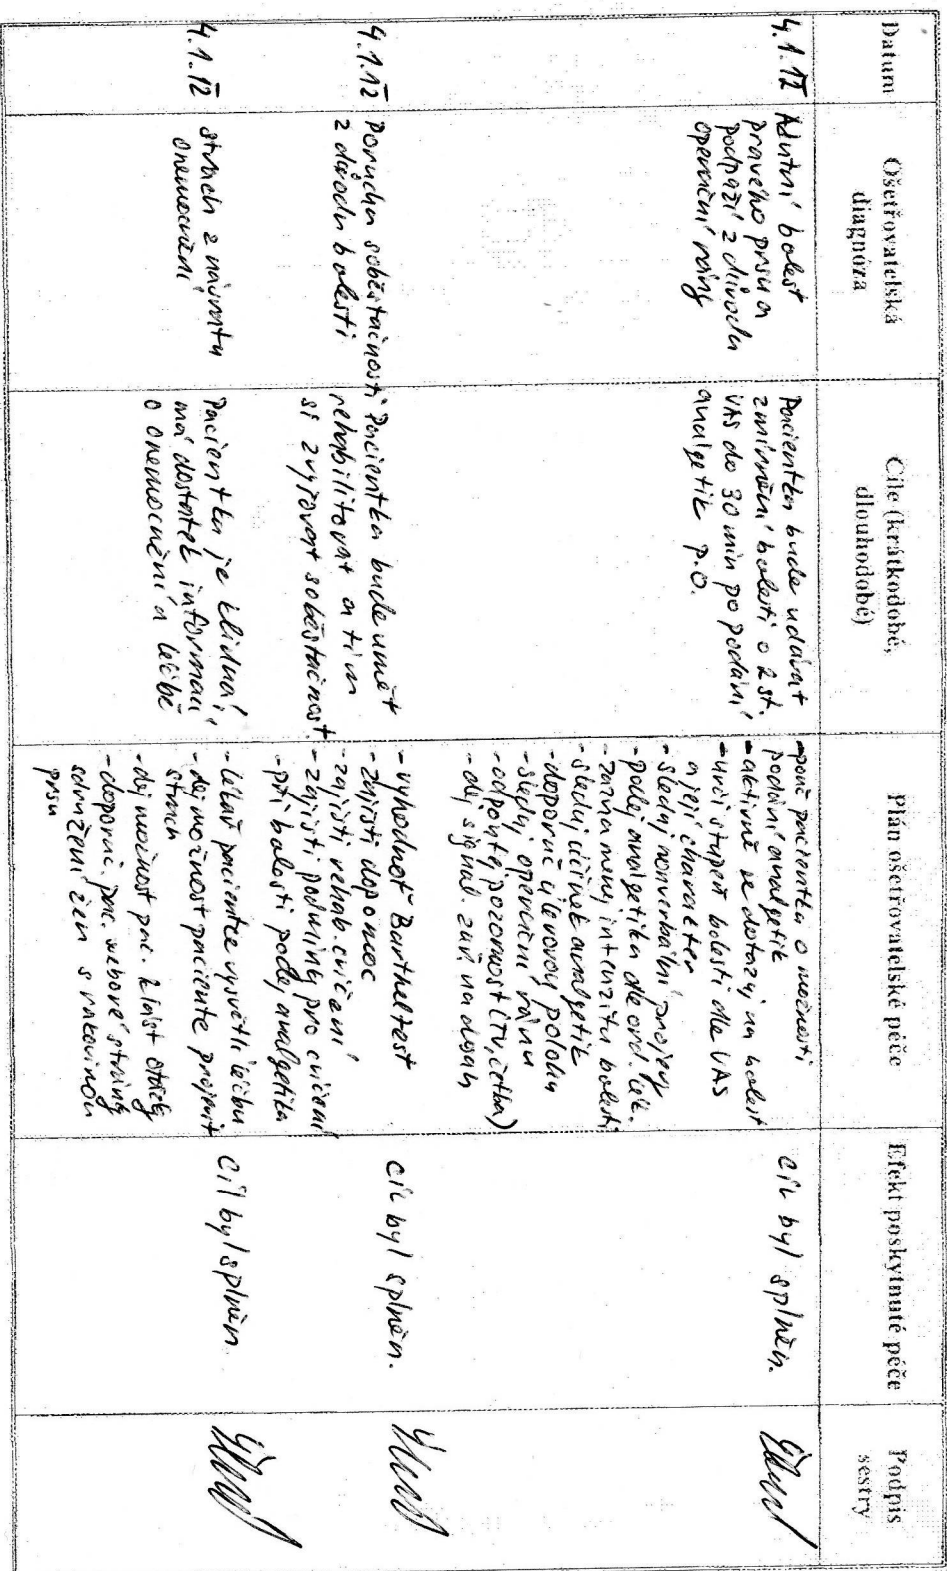 Datum
Ošetřovatelská
diagnóza
Cíle (krátkodobé,
dlouhodobé)
Plán ošetřovatelské péče
Efekt poskytnuté péče
Podpis
sestry
4.1.12
Akutní bolest
pravého prsu a
podpaží z důvodu
operační rány
Pacientka bude udávat
zmírnění bolesti o 2 st.
VAS do 30 min po podání
analgetik p.o.
- pouč pacientku o možnosti
podání analgetik
- aktivně se dotazuj na bolest
- urči stupeň bolesti dle VAS
a její charakter
- sleduj nonverbální projevy
- podej analgetika dle ord. lék.
- zaznamenej intenzitu bolesti
- sleduj účinek analgetik
- doporuč úlevovou polohu
- sleduj operační ránu
- odpoutej pozornost (TV, četba)
- dej signal. zař. na dosah
cíl byl splněn.
4.1.12
Porucha soběstačnosti
z důvodu bolesti
Pacientka bude umět
rehabilitovat a tím
si zvyšovat soběstačnost.
- vyhodnoť Barthel test
- zajisti dopomoc
- zajisti rehab. cvičení
- zajisti podmínky pro cvičení
- při bolesti podej analgetika
cíl byl splněn.
4.1.12
strach z návratu
onemocnění
Pacientka je klidná,
má dostatek informací
o onemocnění a léčbě
- lékař pacientce vysvětlí léčbu
- dej možnost pacientce projevit
strach
- dej možnost pac. klást otázky
- doporuč. pac. webové stránky
sdružení žen s rakovinou
prsu
cíl byl splněn.